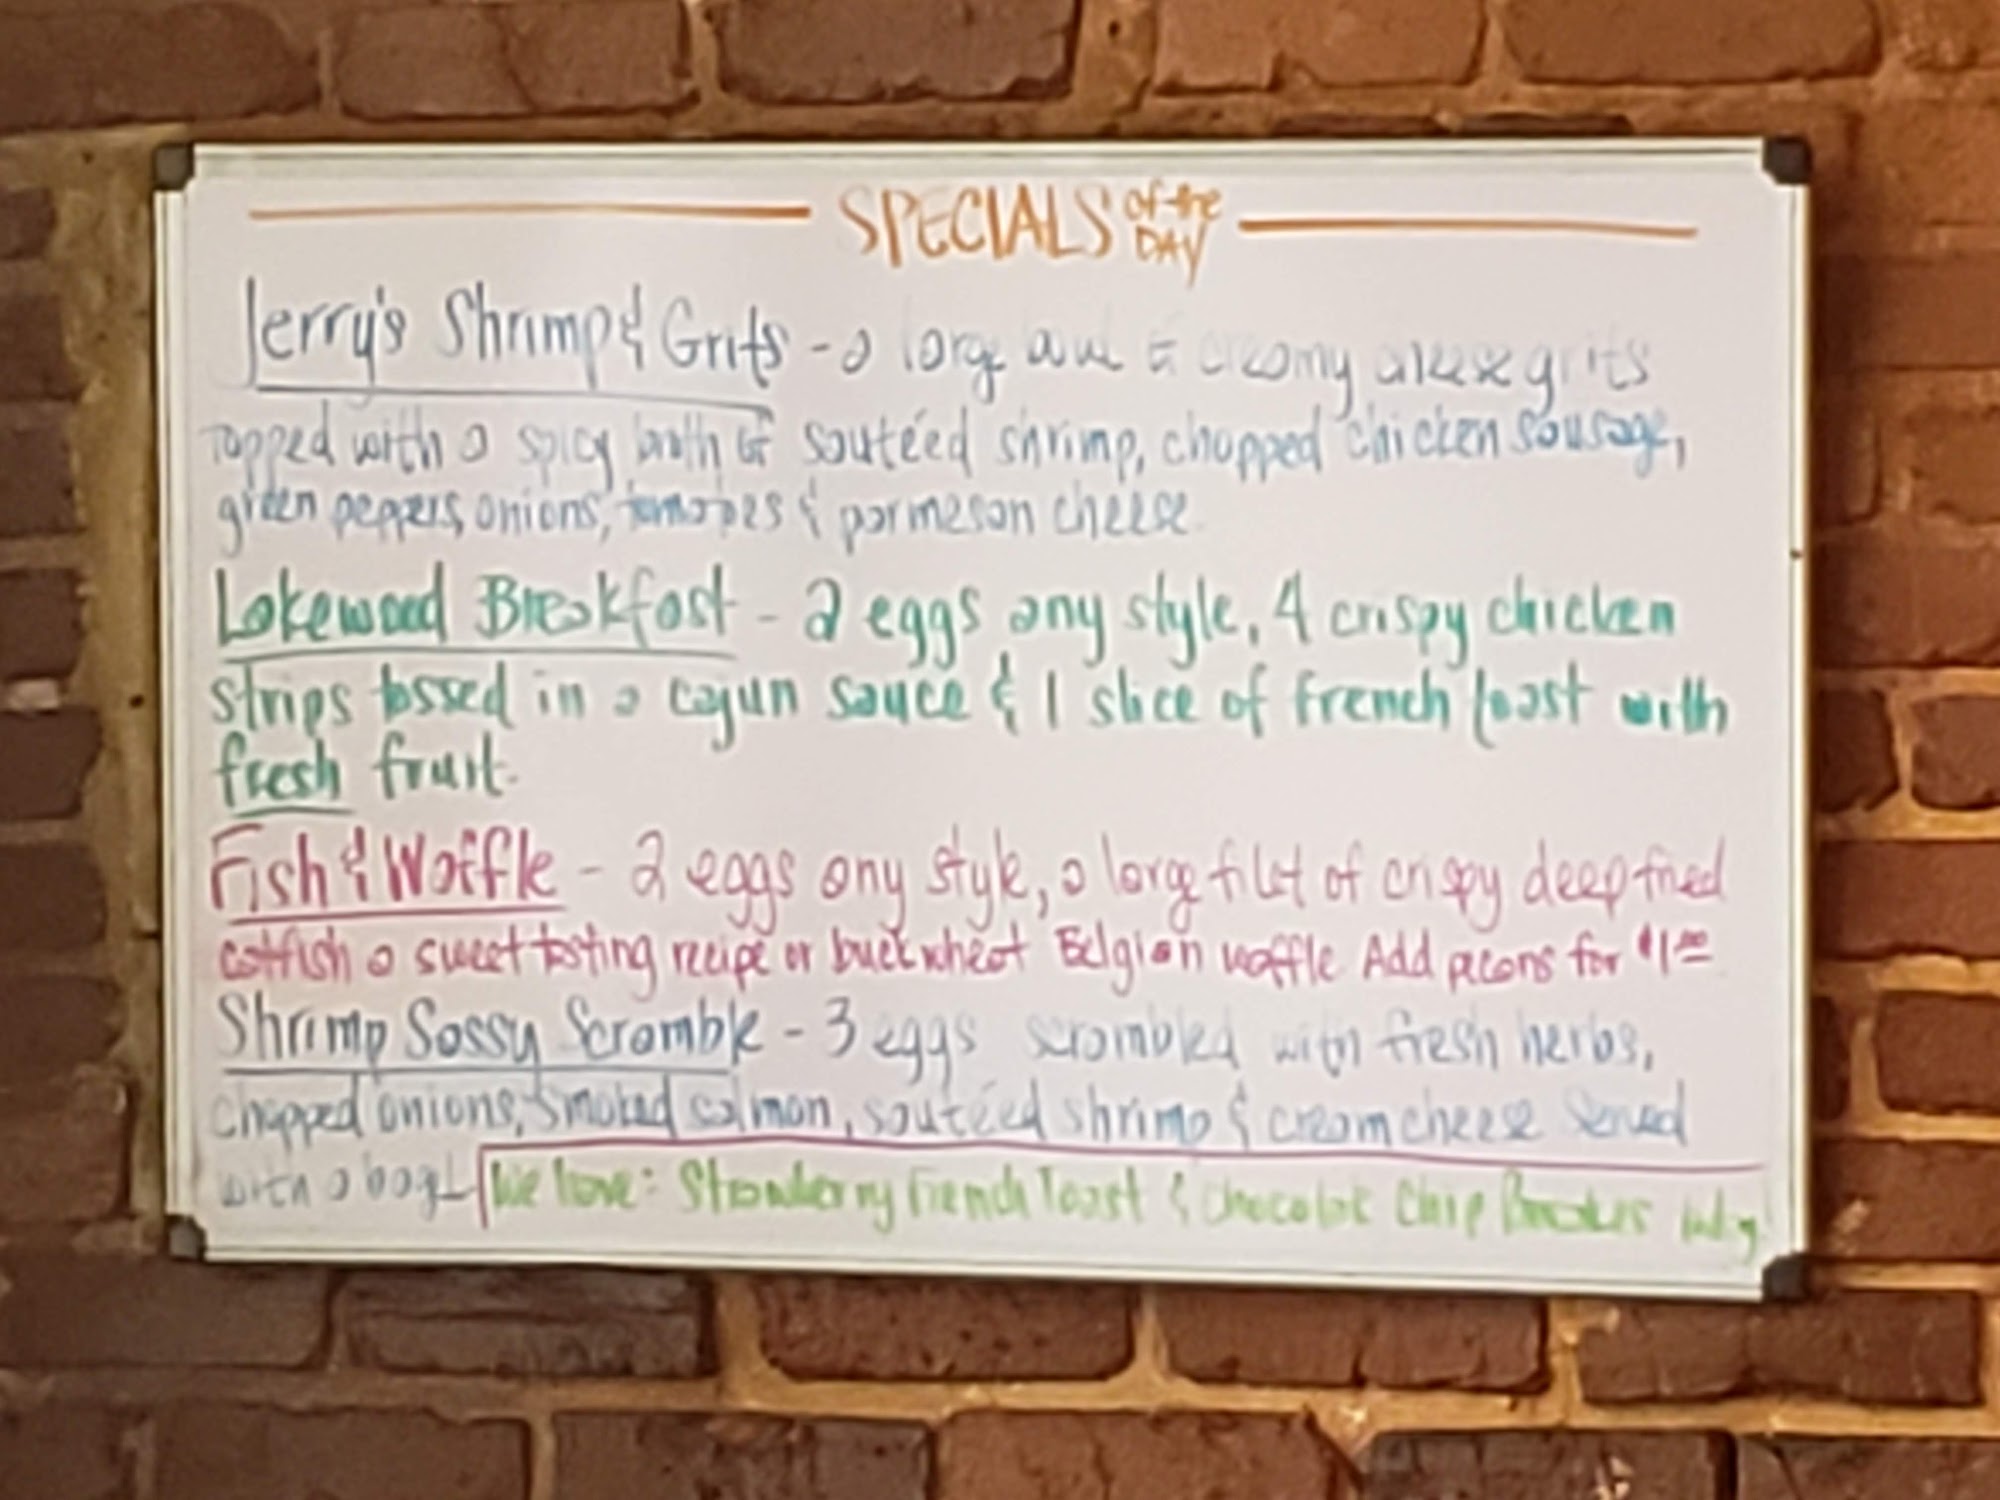 SPECIALS of the DAY
Jerry's Shrimp & Grits - a large bowl of creamy cheese grits
topped with a spicy broth of sautéed shrimp, chopped chicken sausage,
green peppers, onions, tomatoes & parmesan cheese.
Lakewood Breakfast - 2 eggs any style, 4 crispy chicken
strips tossed in a cajun sauce & 1 slice of french toast with
fresh fruit.
Fish & Waffle - 2 eggs any style, a large filet of crispy deep fried
catfish a sweet tasting recipe or buckwheat Belgian waffle Add pecans for $1.00
Shrimp Sassy Scramble - 3 eggs scrambled with fresh herbs,
chopped onions, smoked salmon, sautéed shrimp & cream cheese served
with a bagel
We love: Strawberry French Toast & Chocolate Chip